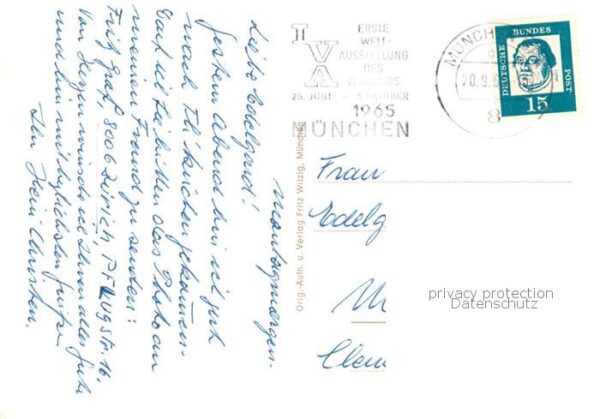 IVA
ERSTE
WELT-
AUSSTELLUNG
DES
VERKEHRS
25. JUNI - 3. OKTOBER
1965
MÜNCHEN
MÜNCH
20.9.
8
DEUTSCHE BUNDESPOST
15
Montagmorgen.
Liebe Edelgard!
Gestern Abend bin ich gut
nach gekommen.
Darf ich Sie bitten das Photo an
meinen Freund zu senden:
Fritz Graf, 8006 Zürich, Pflugstr. 16.
Von wünsche ich Ihnen alles Gute
und bin mit herzlichsten Grüssen
Ihr Christen.
Orig.-Aufn. u. Verlag Fritz Witzig, München
Frau
Edelg
M
Clem
privacy protection
Datenschutz